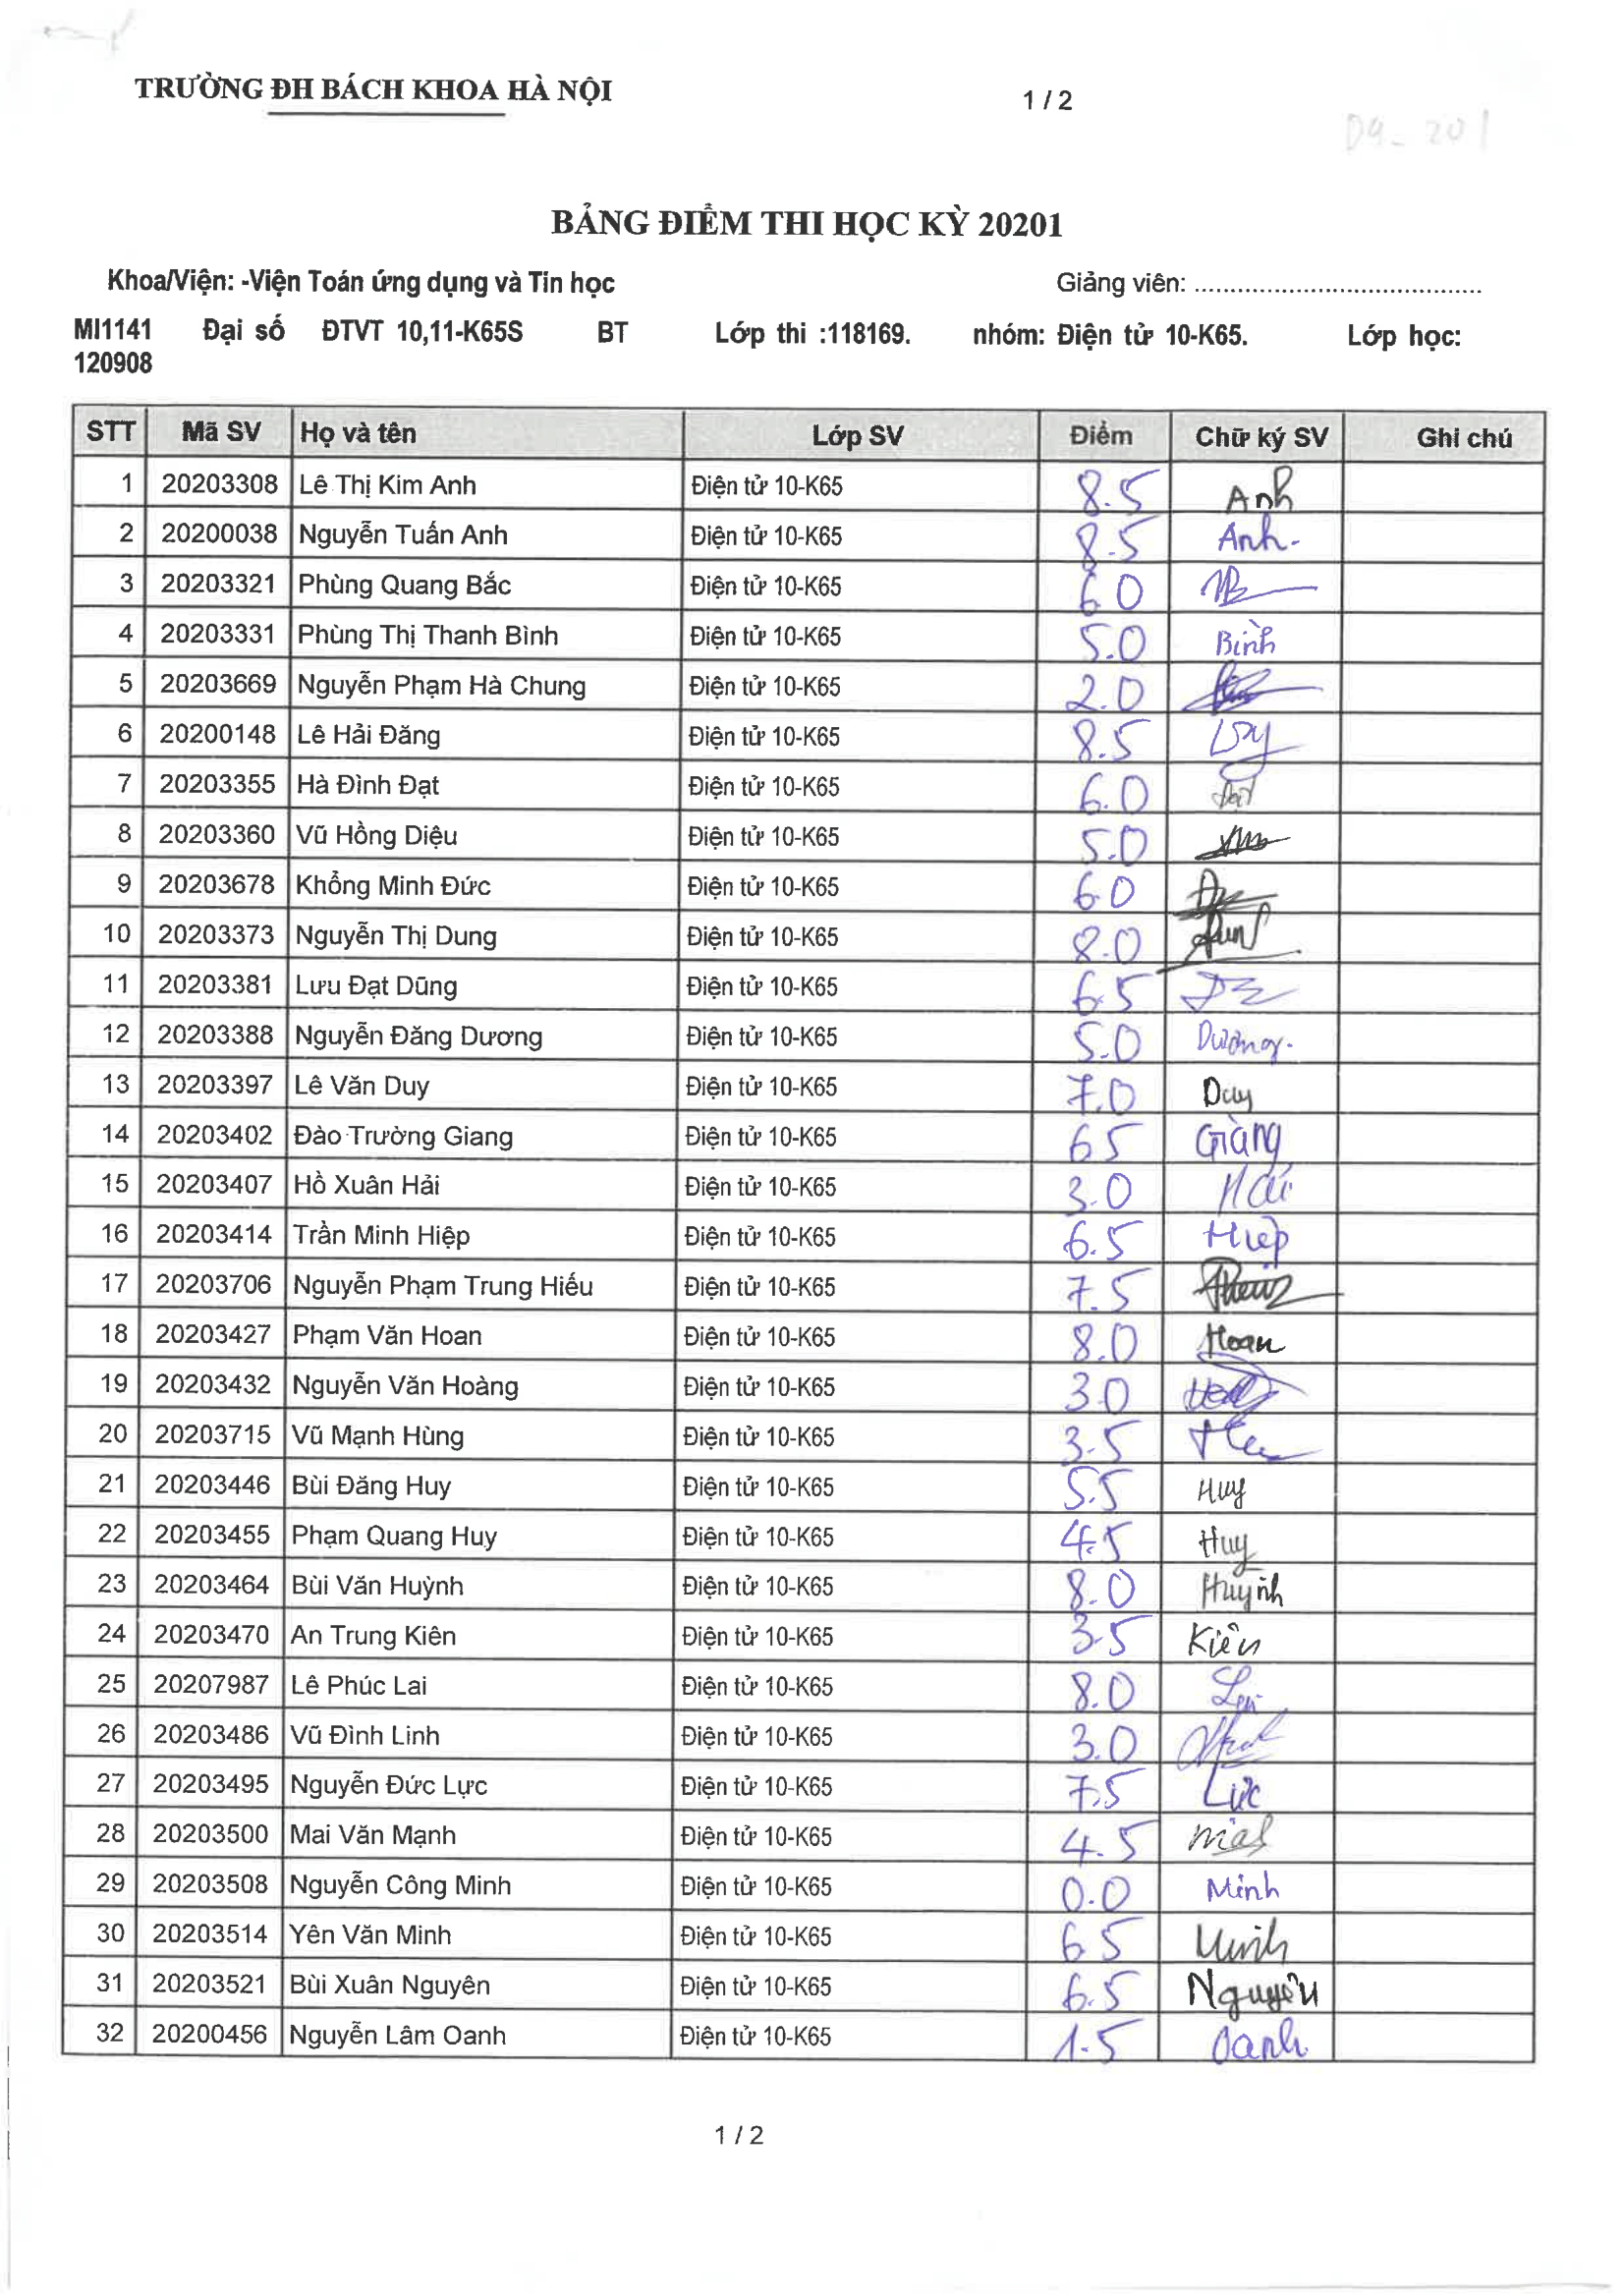 TRƯỜNG ĐH BÁCH KHOA HÀ NỘI
1 / 2
D9-201
BẢNG ĐIỂM THI HỌC KỲ 20201
Khoa/Viện: -Viện Toán ứng dụng và Tin học Giảng viên: ........................................
MI1141 Đại số ĐTVT 10,11-K65S BT Lớp thi :118169. nhóm: Điện tử 10-K65. Lớp học:
120908
STT Mã SV Họ và tên Lớp SV Điểm Chữ ký SV Ghi chú
1 20203308 Lê Thị Kim Anh Điện tử 10-K65 8.5 Anh
2 20200038 Nguyễn Tuấn Anh Điện tử 10-K65 8.5 Anh
3 20203321 Phùng Quang Bắc Điện tử 10-K65 6.0
4 20203331 Phùng Thị Thanh Bình Điện tử 10-K65 5.0 Bình
5 20203669 Nguyễn Phạm Hà Chung Điện tử 10-K65 2.0
6 20200148 Lê Hải Đăng Điện tử 10-K65 8.5
7 20203355 Hà Đình Đạt Điện tử 10-K65 6.0 Đạt
8 20203360 Vũ Hồng Diệu Điện tử 10-K65 5.0
9 20203678 Khổng Minh Đức Điện tử 10-K65 6.0
10 20203373 Nguyễn Thị Dung Điện tử 10-K65 8.0
11 20203381 Lưu Đạt Dũng Điện tử 10-K65 6.5
12 20203388 Nguyễn Đăng Dương Điện tử 10-K65 5.0 Dương.
13 20203397 Lê Văn Duy Điện tử 10-K65 7.0 Duy
14 20203402 Đào Trường Giang Điện tử 10-K65 6.5 Giang
15 20203407 Hồ Xuân Hải Điện tử 10-K65 3.0 Hải
16 20203414 Trần Minh Hiệp Điện tử 10-K65 6.5 Hiệp
17 20203706 Nguyễn Phạm Trung Hiếu Điện tử 10-K65 7.5
18 20203427 Phạm Văn Hoan Điện tử 10-K65 8.0 Hoan
19 20203432 Nguyễn Văn Hoàng Điện tử 10-K65 3.0
20 20203715 Vũ Mạnh Hùng Điện tử 10-K65 3.5
21 20203446 Bùi Đăng Huy Điện tử 10-K65 5.5 Huy
22 20203455 Phạm Quang Huy Điện tử 10-K65 4.5 Huy
23 20203464 Bùi Văn Huỳnh Điện tử 10-K65 8.0 Huỳnh
24 20203470 An Trung Kiên Điện tử 10-K65 3.5 Kiên
25 20207987 Lê Phúc Lai Điện tử 10-K65 8.0 Lai
26 20203486 Vũ Đình Linh Điện tử 10-K65 3.0
27 20203495 Nguyễn Đức Lực Điện tử 10-K65 7.5 Lực
28 20203500 Mai Văn Mạnh Điện tử 10-K65 4.5
29 20203508 Nguyễn Công Minh Điện tử 10-K65 0.0 Minh
30 20203514 Yên Văn Minh Điện tử 10-K65 6.5 Minh
31 20203521 Bùi Xuân Nguyên Điện tử 10-K65 6.5 Nguyên
32 20200456 Nguyễn Lâm Oanh Điện tử 10-K65 1.5 Oanh
1 / 2